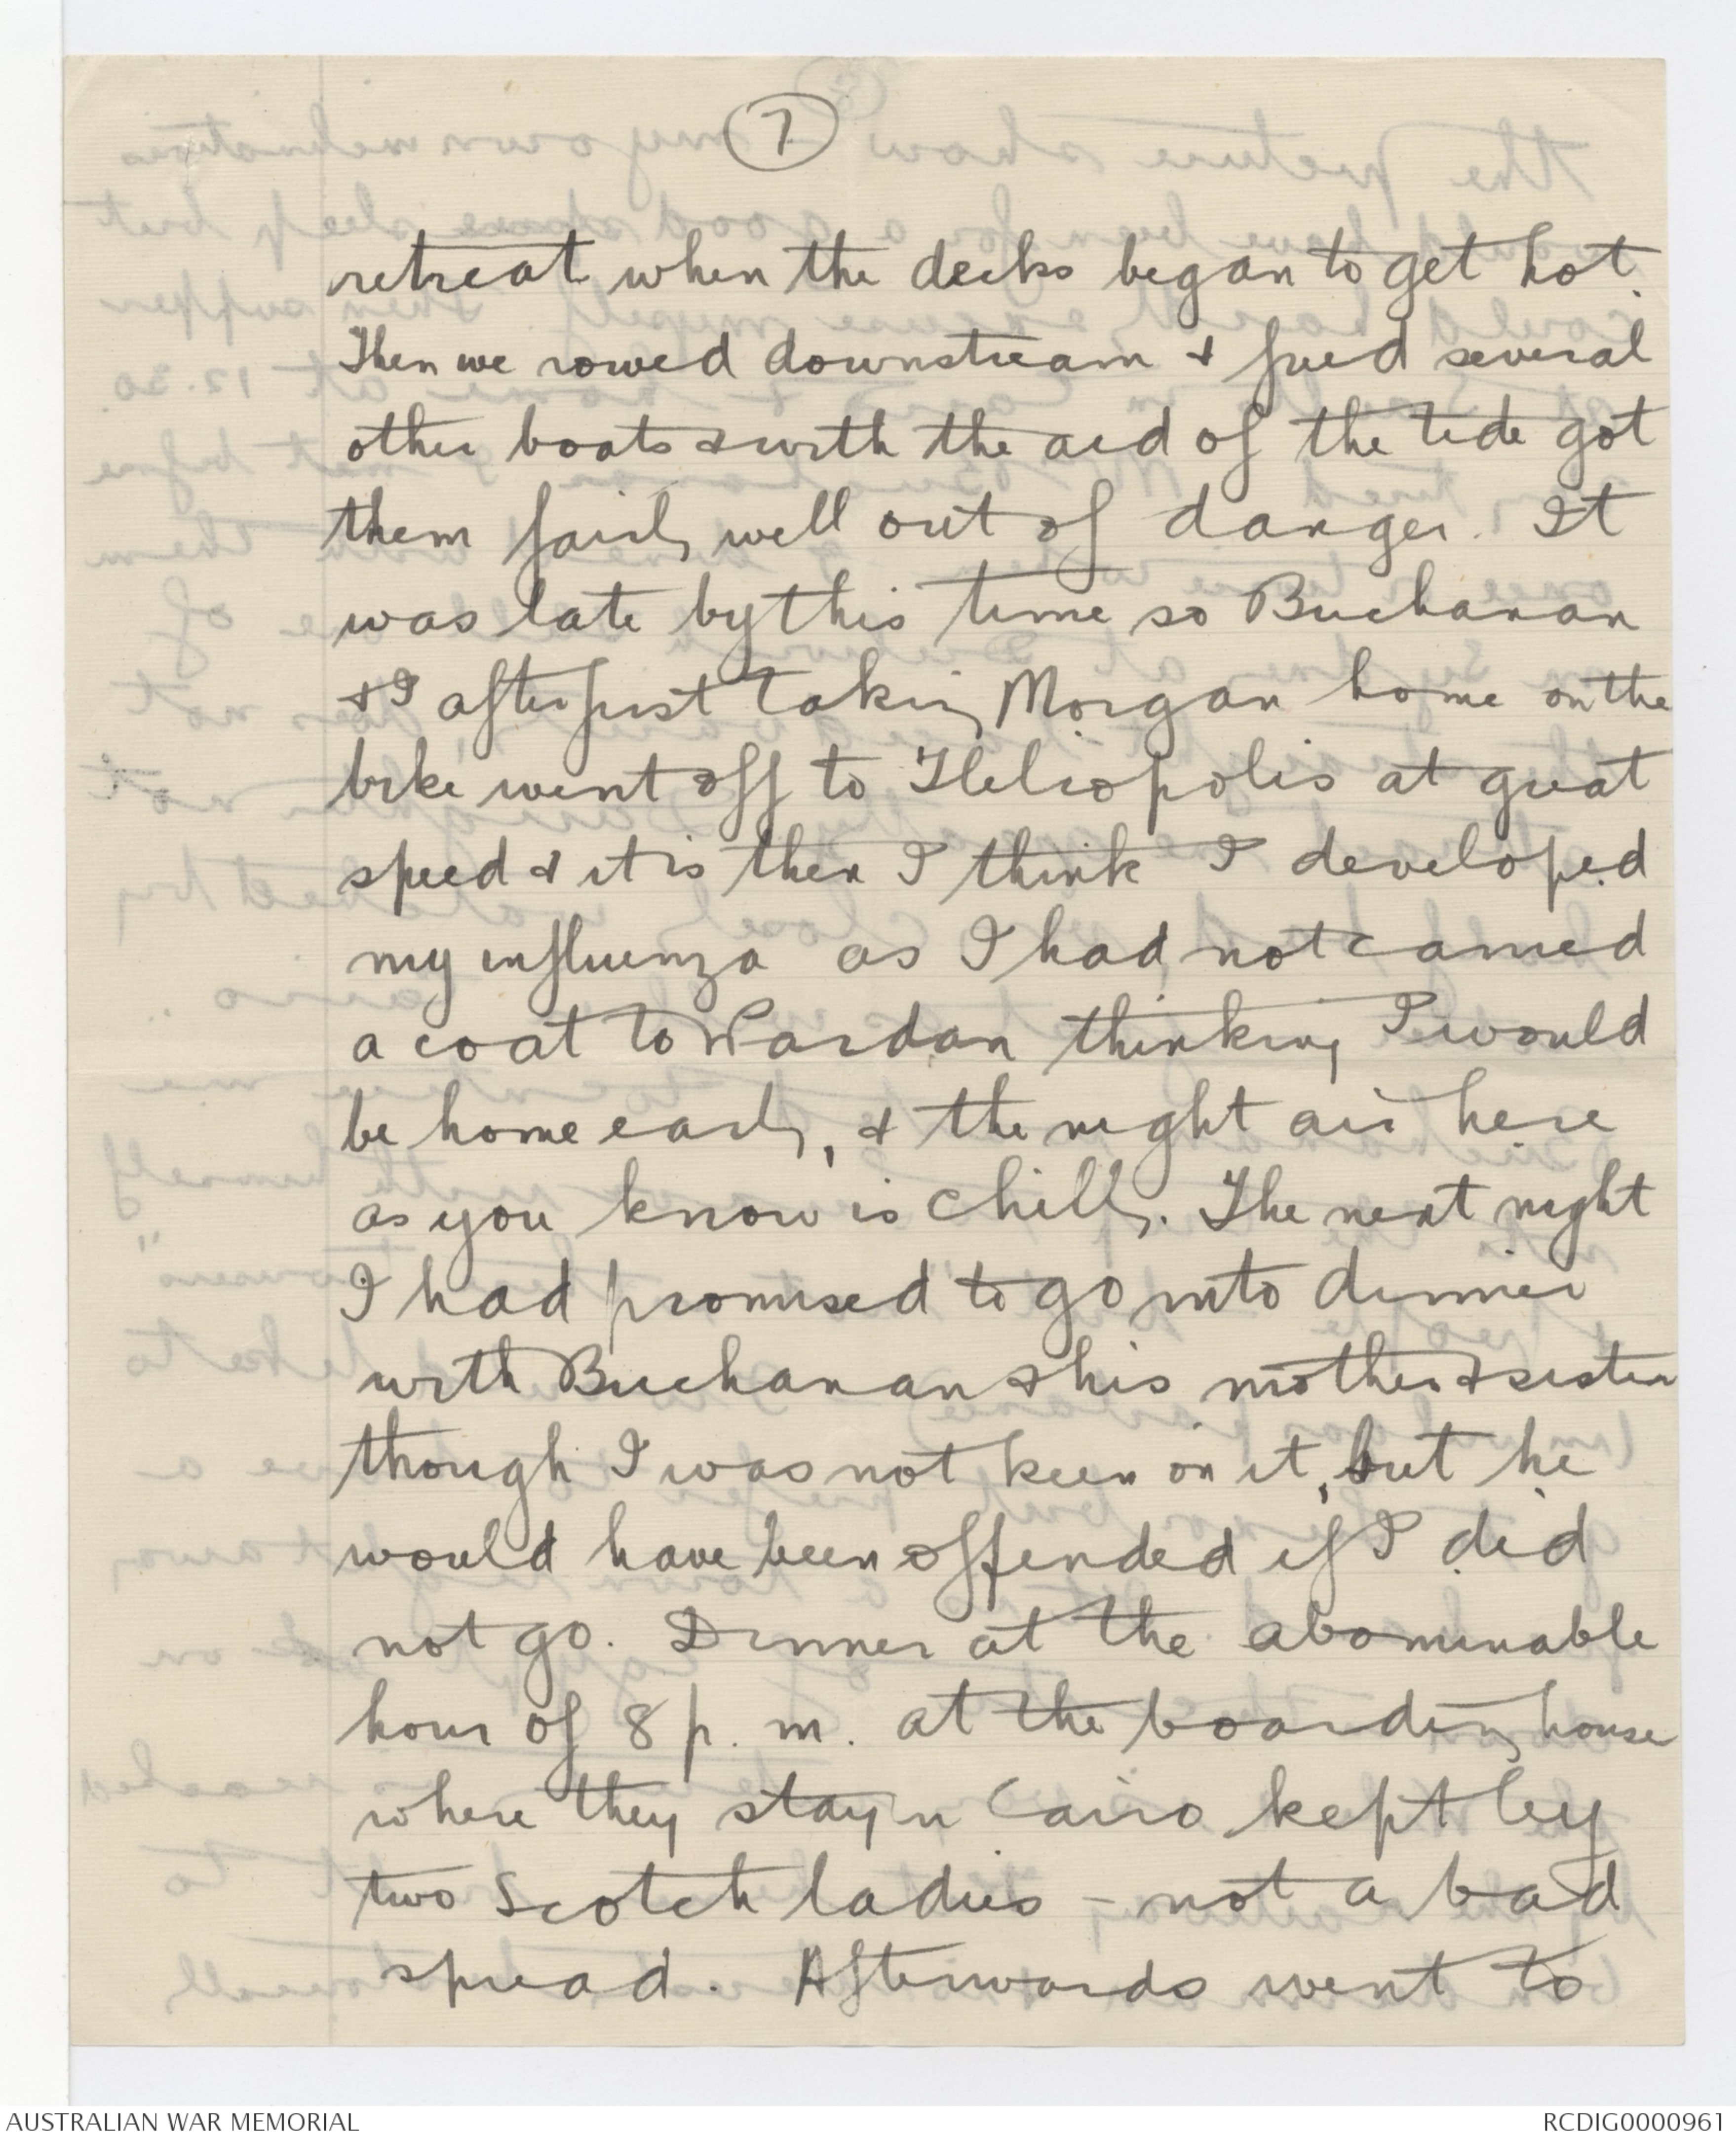 7
retreat when the decks began to get hot.
Then we rowed downstream & freed several
other boats & with the aid of the tide got
them fairly well out of danger. It
was late by this time so Buchanan
& I after first taking Morgan home on the
bike went off to Heliopolis at great
speed & it is then I think I developed
my influenza as I had not carried
a coat to Wardan thinking I would
be home early, & the night air here
as you know is chilly. The next night
I had promised to go into dinner
with Buchanan & his mother & sister
though I was not keen on it, but he
would have been offended if I did
not go. Dinner at the abominable
hour of 8 p.m. at the boarding house
where they stay in Cairo kept by
two Scotch ladies - not a bad
spread. Afterwards went to
AUSTRALIAN WAR MEMORIAL
RCDIG0000961